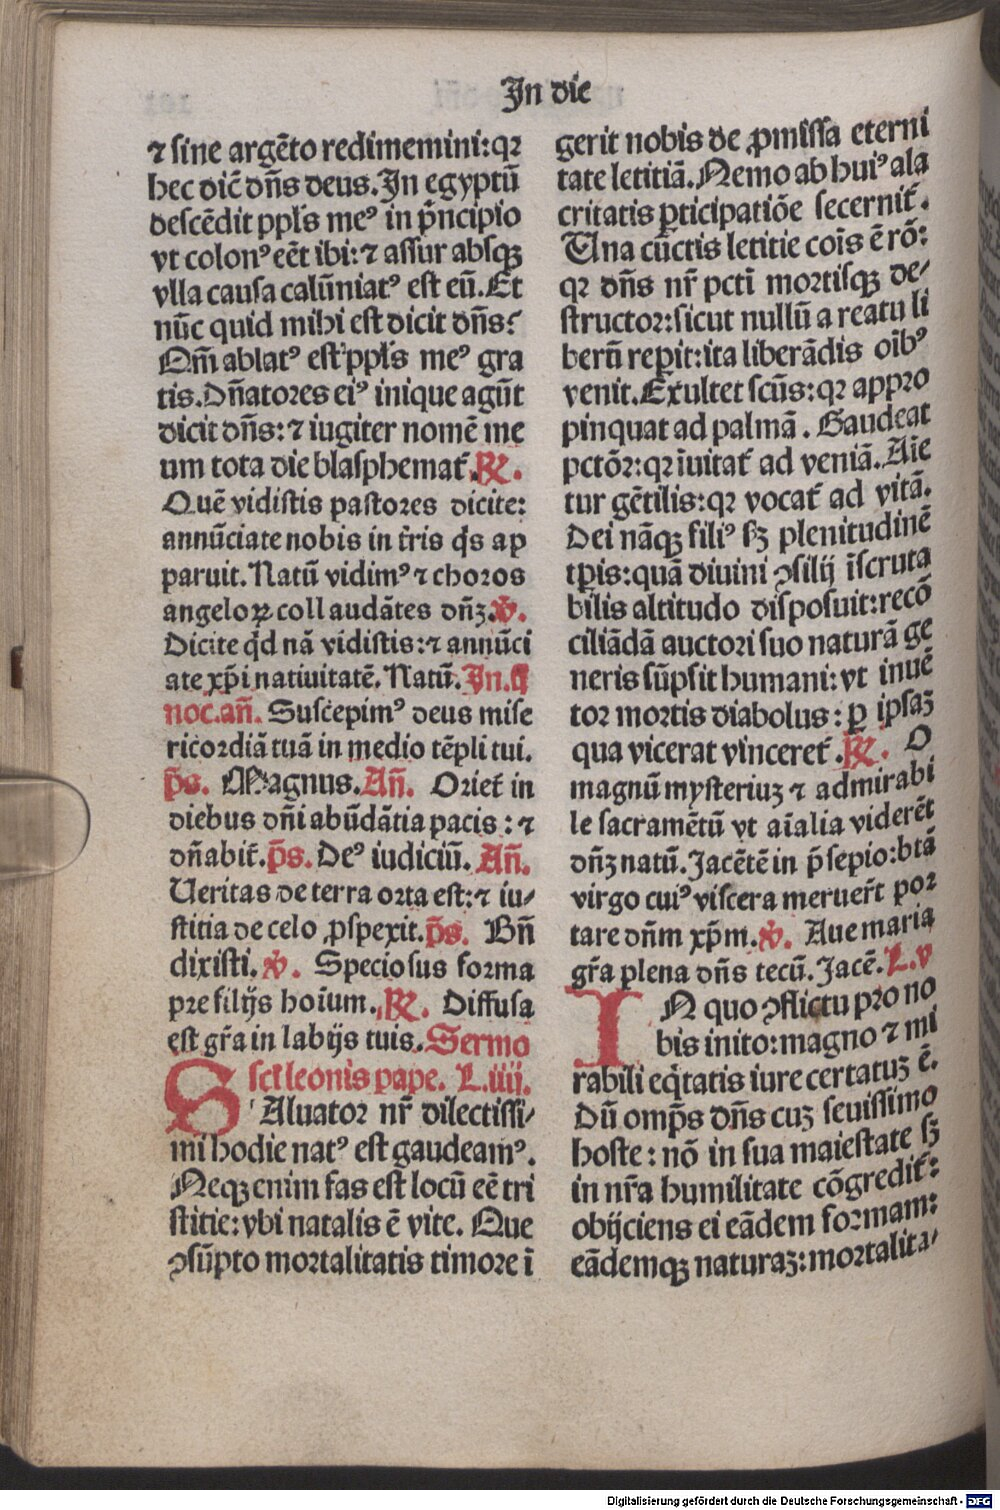 In die
⁊ sine argẽto redimemini: qꝛ
hec dic̃ dñs deus. In egyptũ
descẽdit ppl's meꝰ in p̃ncipio
vt colonꝰ eẽt ibi: ⁊ assur absqꝫ
vlla causa calũniatꝰ est eũ. Et
nũc quid mihi est dicit dñs?
Qm̃ ablatꝰ est ppl's meꝰ gra
tis. Dñatores eiꝰ inique agũt
dicit dñs: ⁊ iugiter nomẽ me
um tota die blasphemat̃. ℞.
Quẽ vidistis pastores dicite:
annũciate nobis in t̃ris q̃s ap
paruit. Natũ vidimꝰ ⁊ choros
angeloꝝ collaudãtes dñꝫ. ℣.
Dicite q̃d nã vidistis: ⁊ annũci
ate xp̃i natiuitatẽ. Natũ. In. ij
noc. añ. Suscepimꝰ deus mise
ricordiã tuã in medio tẽpli tui.
p̃s. Magnus. Añ. Oriet̃ in
diebus dñi abũdãtia pacis: ⁊
dñabit̃. p̃s. Deꝰ iudiciũ. Añ.
Veritas de terra orta est: ⁊ iu⸗
stitia de celo ꝓspexit. p̃s. Bñ
dixisti. ℣. Speciosus forma
pre filijs hoĩum. ℞. Diffusa
est gr̃a in labijs tuis. Sermo
sct̃i leonis pape. L. iiij.
SAluator nr̃ dilectissi⸗
mi hodie natꝰ est gaudeamꝰ.
Neqꝫ enim fas est locũ eẽ tri
stitie: vbi natalis ẽ vite. Que
ꝯsũpto mortalitatis timore ĩ
gerit nobis de ꝓmissa eterni
tate letitiã. Nemo ab huiꝰ ala
critatis ꝑticipatiõe secernit̃.
Una cũctis letitie cõis ẽ rõ:
qꝛ dñs nr̃ pctĩ mortisqꝫ de⸗
structor: sicut nullũ a reatu li
berũ reꝑit: ita liberãdis oĩbꝰ
venit. Exultet scũs: qꝛ appro
pinquat ad palmã. Gaudeat
pctõr: qꝛ ĩuitat̃ ad veniã. Aĩe
tur gẽtilis: qꝛ vocat̃ ad vitã.
Dei nãqꝫ filiꝰ sꝫ plenitudinẽ
tp̃is: quã diuini ꝯsilij ĩscruta
bilis altitudo disposuit: recõ
ciliãdã auctori suo naturã ge
neris sũpsit humani: vt inuẽ
tor mortis diabolus: ꝑ ipsaꝫ
qua vicerat vĩnceret̃. ℞. O
magnũ mysteriuꝫ ⁊ admirabi
le sacramẽtũ vt aĩalia viderẽt
dñꝫ natũ. Jacẽtẽ in p̃sepio: btã
virgo cuiꝰ viscera meruer̃t por
tare dñm xp̃m. ℣. Aue maria
gr̃a plena dñs tecũ. Jacẽ. L. v
IN quo ꝯflictu pro no
bis inito: magno ⁊ mi
rabili eq̃tatis iure certatuꝫ ẽ.
Dũ omp̃s dñs cuꝫ seuissimo
hoste: nõ in sua maiestate sꝫ
in nr̃a humilitate cõgredit̃:
obijciens ei eãdem formam:
eãdemqꝫ naturaꝫ: mortalita⸗
Digitalisierung gefördert durch die Deutsche Forschungsgemeinschaft - DFG